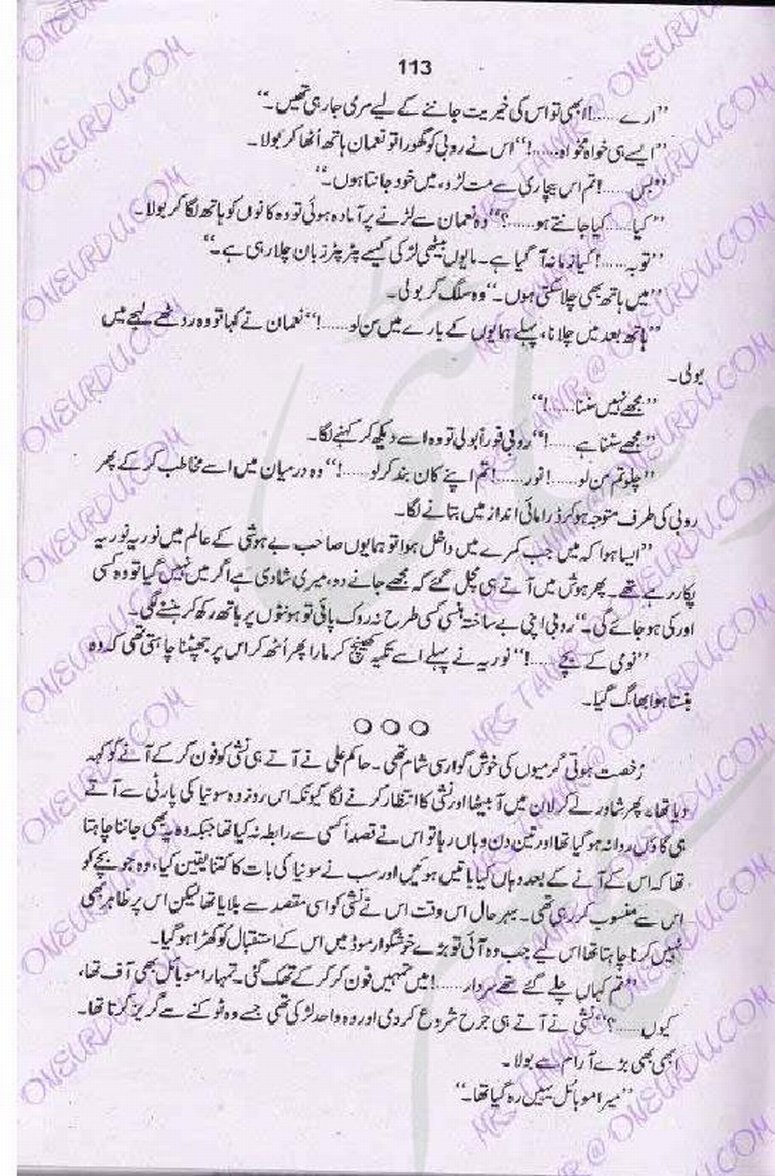 113
”ارے......! ابھی تو اس کی خیریت جاننے کے لیے مری جا رہی تھیں۔“
”ایسے ہی خواہ مخواہ......!“ اس نے روبی کو گھورا تو نعمان ہاتھ اُٹھا کر بولا۔
”بس......! تم اس بیچاری سے مت لڑو، میں خود جانتا ہوں۔“
”کیا......کیا جانتے ہو......؟“ وہ نعمان سے لڑنے پر آمادہ ہوئی تو وہ کانوں کو ہاتھ لگا کر بولا۔
”توبہ......! کیا زمانہ آ گیا ہے۔ مایوں بیٹھی لڑکی کیسے پٹر پٹر زبان چلا رہی ہے۔“
”میں ہاتھ بھی چلا سکتی ہوں۔“ وہ سلگ کر بولی۔
”ہاتھ بعد میں چلانا، پہلے ہمایوں کے بارے میں سن لو......!“ نعمان نے کہا تو وہ روٹھے لہجے میں
بولی۔
”مجھے نہیں سننا......!“
”مجھے سننا ہے......!“ روبی فوراً بولی تو وہ اسے دیکھ کر کہنے لگا۔
”چلو تم سن لو......! نور......! تم اپنے کان بند کر لو......!“ وہ درمیان میں اسے مخاطب کر کے پھر
روبی کی طرف متوجہ ہو کر ڈرامائی انداز میں بتانے لگا۔
”ایسا ہوا کہ میں جب کمرے میں داخل ہوا تو ہمایوں صاحب بے ہوشی کے عالم میں نوریہ نوریہ
پکار رہے تھے۔ پھر ہوش میں آتے ہی مچل گئے کہ مجھے جانے دو، میری شادی ہے اگر میں نہیں گیا تو وہ کسی
اور کی ہو جائے گی۔“ روبی اپنی بے ساختہ ہنسی کسی طرح نہ روک پائی تو ہونٹوں پر ہاتھ رکھ کر ہنسنے لگی۔
”نومی کے بچے......!“ نوریہ نے پہلے اسے تکیہ کھینچ کر مارا پھر اُٹھ کر اس پر جھپٹنا چاہتی تھی کہ وہ
ہنستا ہوا بھاگ گیا۔
○ ○ ○
رُخصت ہوتی گرمیوں کی خوش گوار سی شام تھی۔ حاکم علی نے آتے ہی نشی کو فون کر کے آنے کو کہہ
دیا تھا، پھر شاور لے کر لان میں آ بیٹھا اور نشی کا انتظار کرنے لگا کیونکہ اس روز وہ سونیا کی پارٹی سے آتے
ہی گاؤں روانہ ہو گیا تھا اور تین دن وہاں رہا تو اس نے قصداً کسی سے رابطہ نہ کیا تھا جبکہ وہ یہ بھی جاننا چاہتا
تھا کہ اس کے آنے کے بعد وہاں کیا باتیں ہوئیں اور سب نے سونیا کی بات کا کتنا یقین کیا، وہ جو بچے کو
اس سے منسوب کر رہی تھی۔ بہر حال اس وقت اس نے نشی کو اسی مقصد سے بلایا تھا لیکن اس پر ظاہر بھی
نہیں کرنا چاہتا تھا اس لیے جب وہ آئی تو بڑے خوشگوار موڈ میں اس کے استقبال کو کھڑا ہو گیا۔
”تم کہاں چلے گئے تھے سردار......! میں تمہیں فون کر کر کے تھک گئی۔ تمہارا موبائل بھی آف تھا،
کیوں......؟“ نشی نے آتے ہی جرح شروع کر دی اور وہ واحد لڑکی تھی جسے وہ ٹوکنے سے گریز کرتا تھا۔
ابھی بھی بڑے آرام سے بولا۔
”میرا موبائل یہیں رہ گیا تھا۔“
MRS TANVIR @ ONEURDU.COM